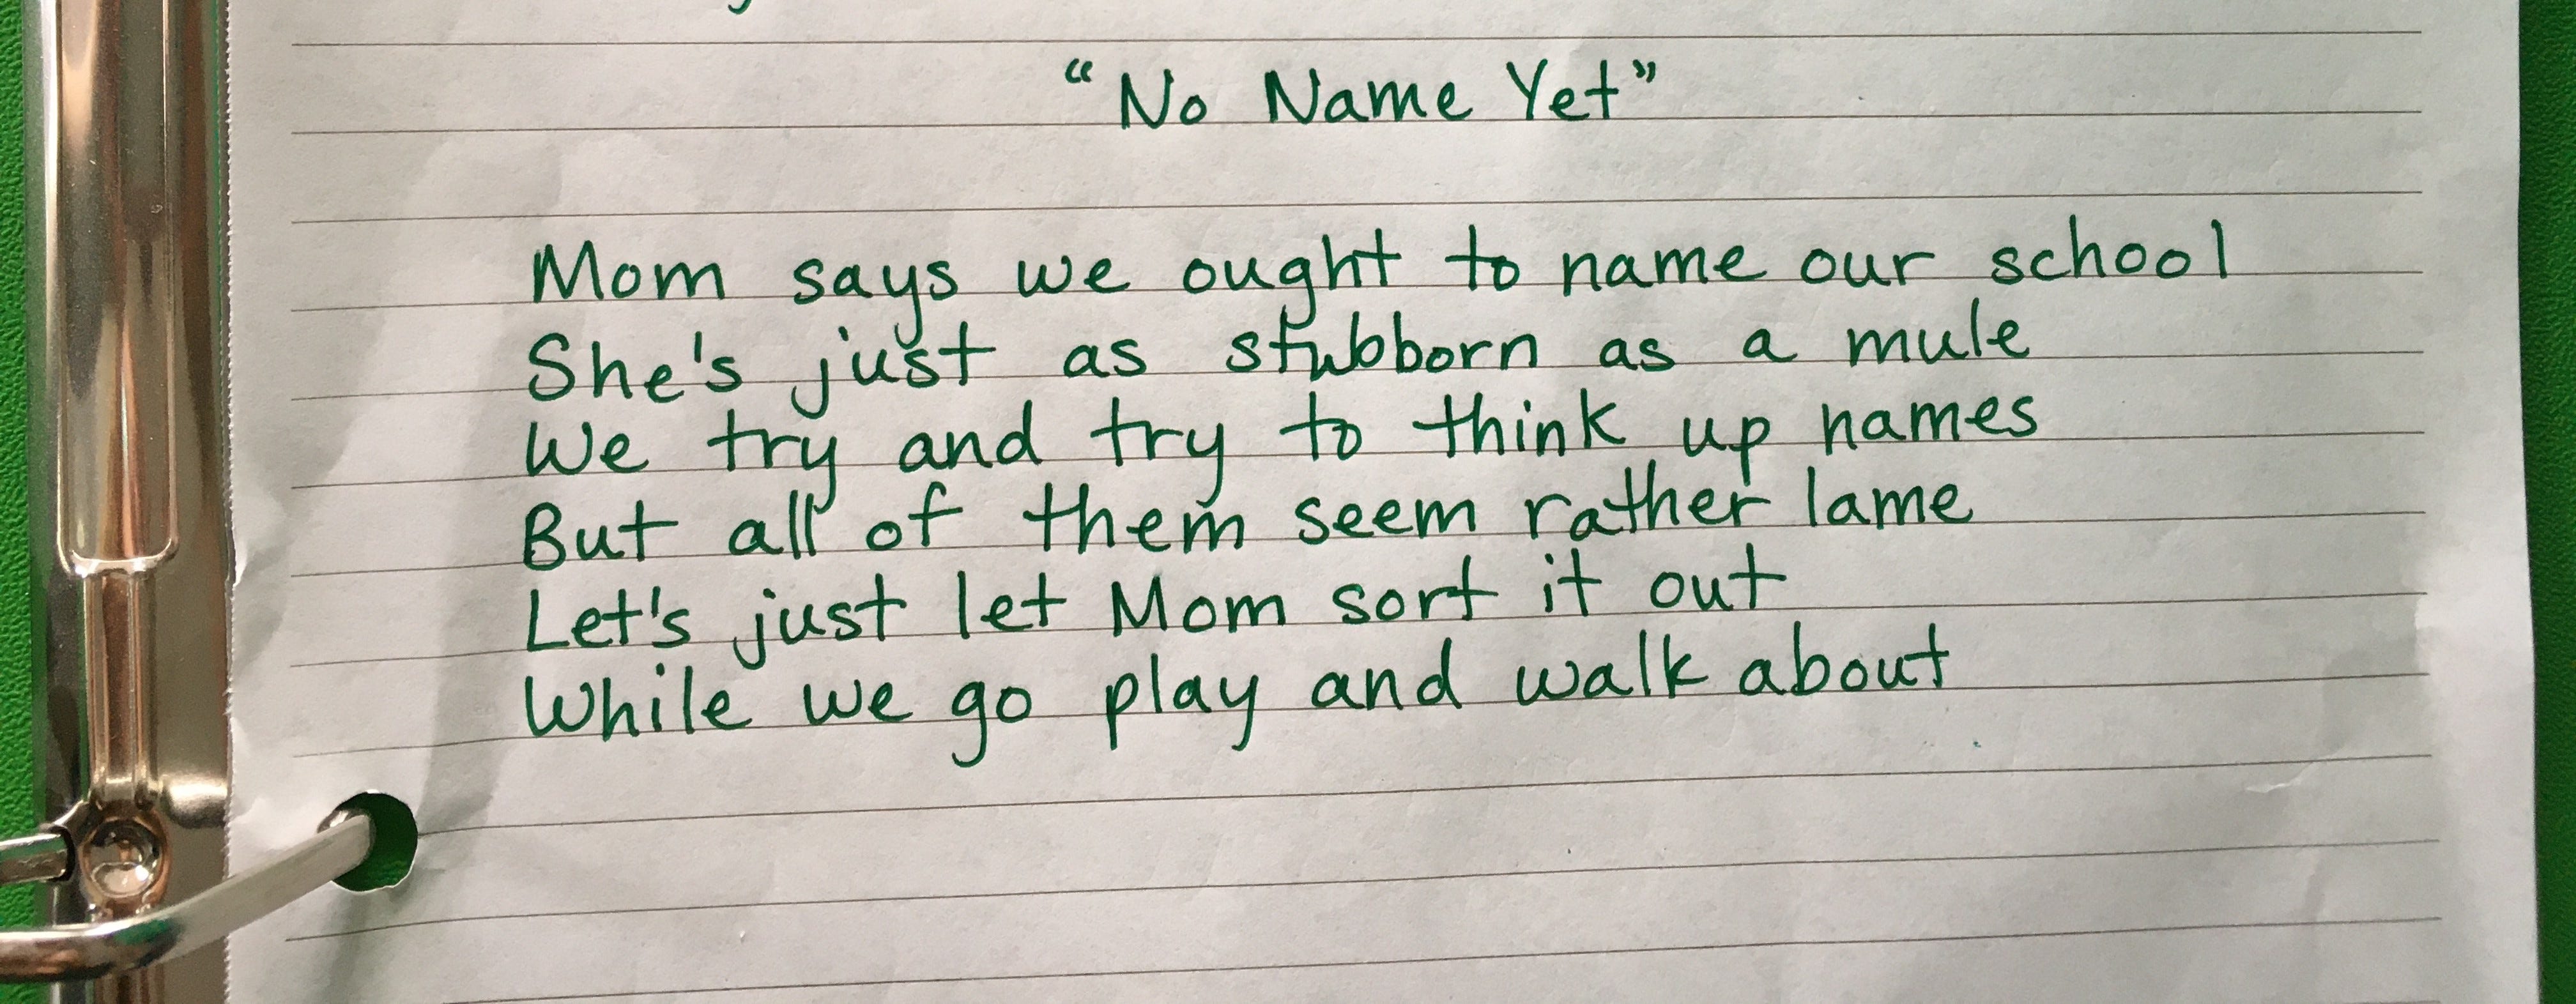 “No Name Yet”
Mom says we ought to name our school
She's just as stubborn as a mule
We try and try to think up names
But all of them seem rather lame
Let's just let Mom sort it out
While we go play and walk about